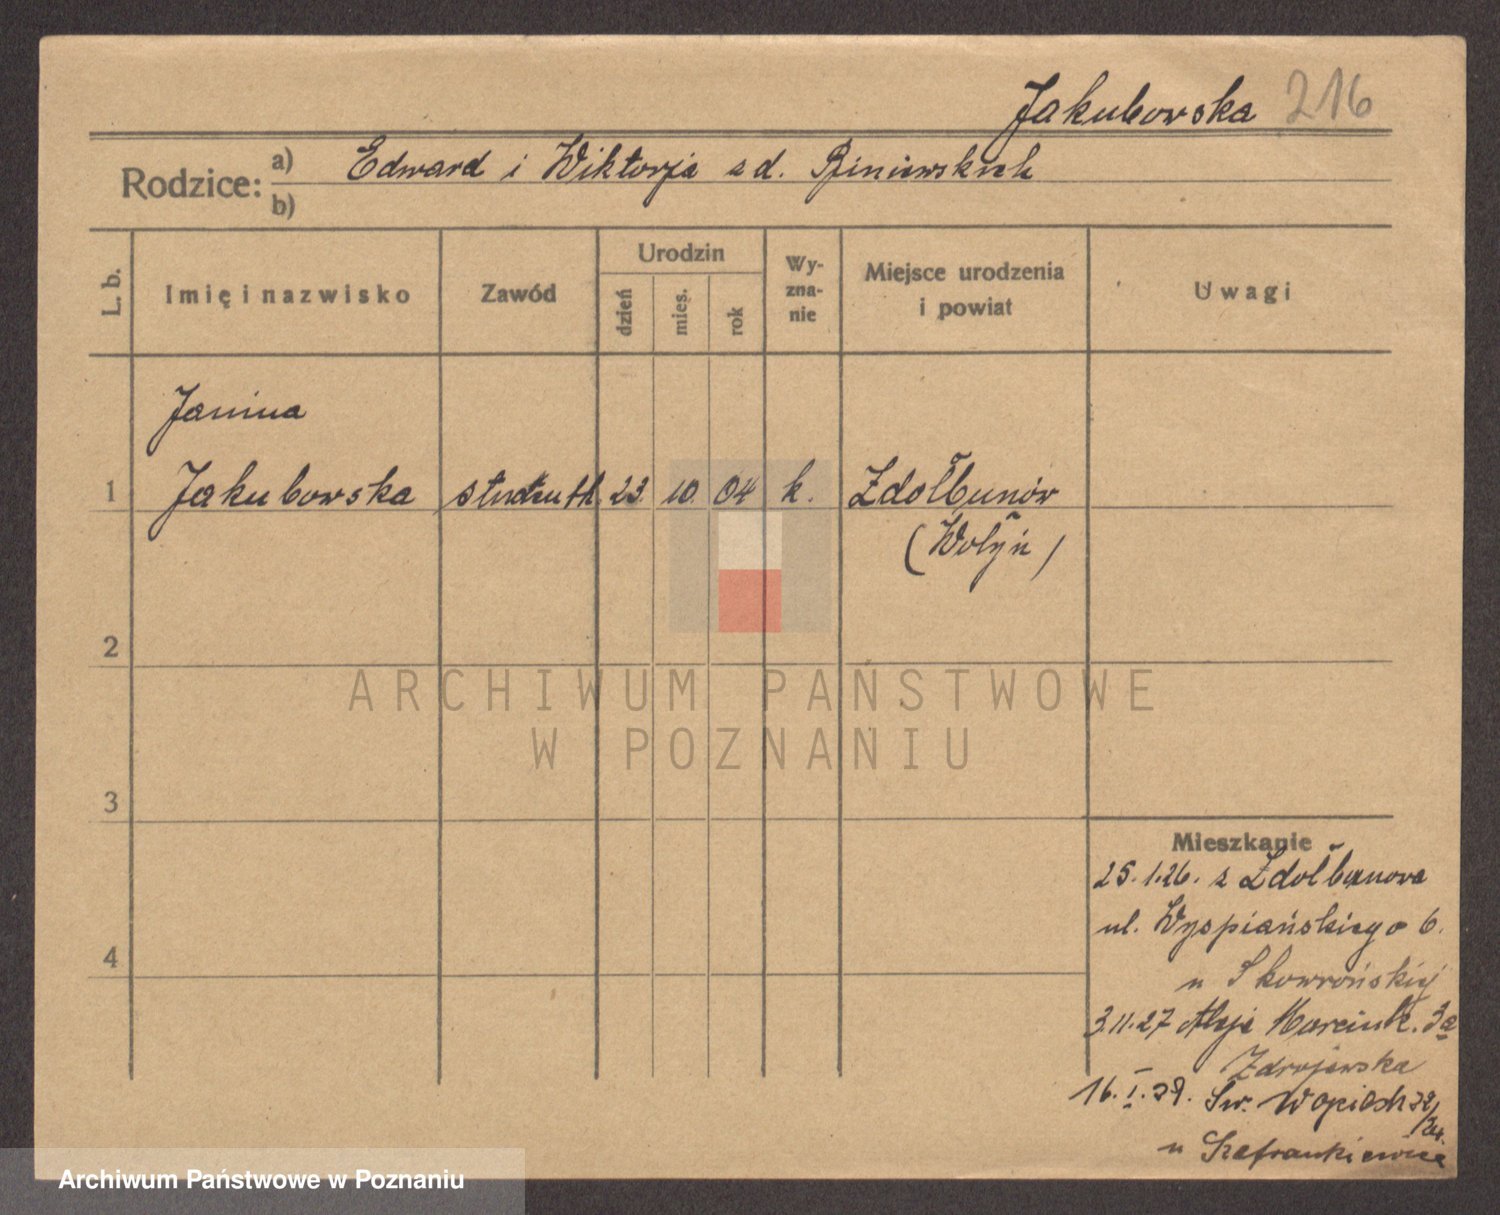 Jakubowska 216
Rodzice: a) Edward i Wiktorja z d.
b)
L. b. Imię i nazwisko Zawód Urodzin dzień mies. rok Wy-zna-nie Miejsce urodzenia i powiat Uwagi
Janina
1 Jakubowska studentk. 23 10 04 k. Zdołbunów
(Wołyń)
2
ARCHIWUM PAŃSTWOWE
W POZNANIU
3
Mieszkanie
25.1.26. z Zdołbunowa
ul. Wyspiańskiego 6.
u Skowrońskiej
4
3.11.27 Aleje Marcink. 3a
Zdrojewska
16.I. Św. Wojciech
u Szafrankiewicz
Archiwum Państwowe w Poznaniu